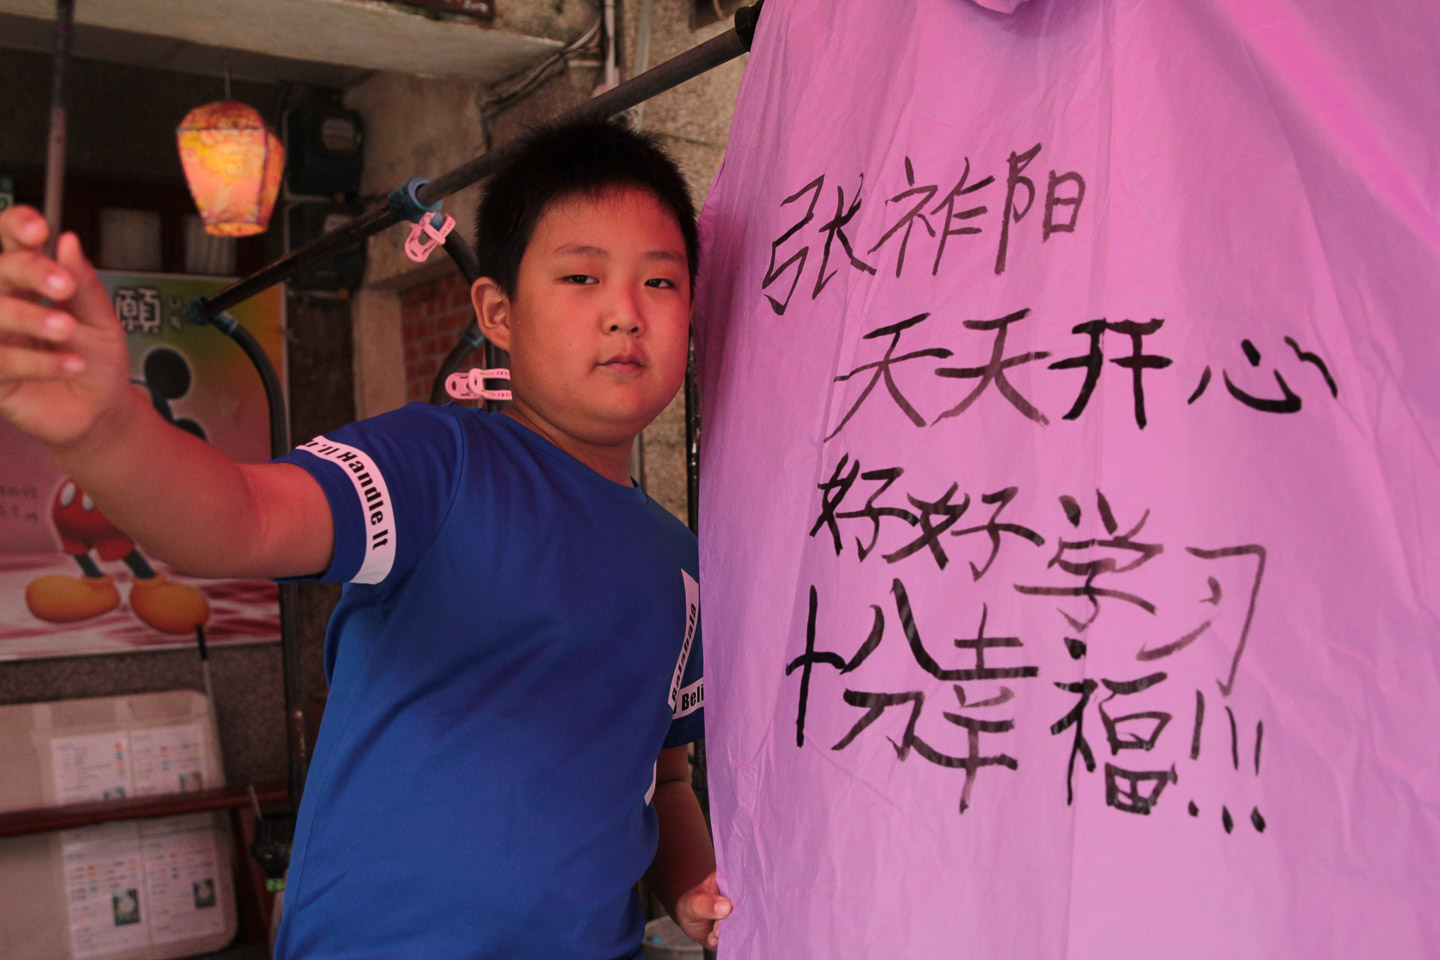 张祚阳
天天开心
好好学习
十八分幸福!!!
願
I'll Handle It
Beli